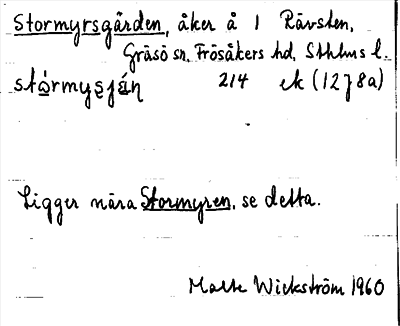 Stormyrsgärden, åker å 1 Rävsten,
Gräsö sn. Frösåkers hd, Sthlms l.
214 ek (12 J 8a)
Ligger nära Stormyren, se detta.
Malte Wickström 1960